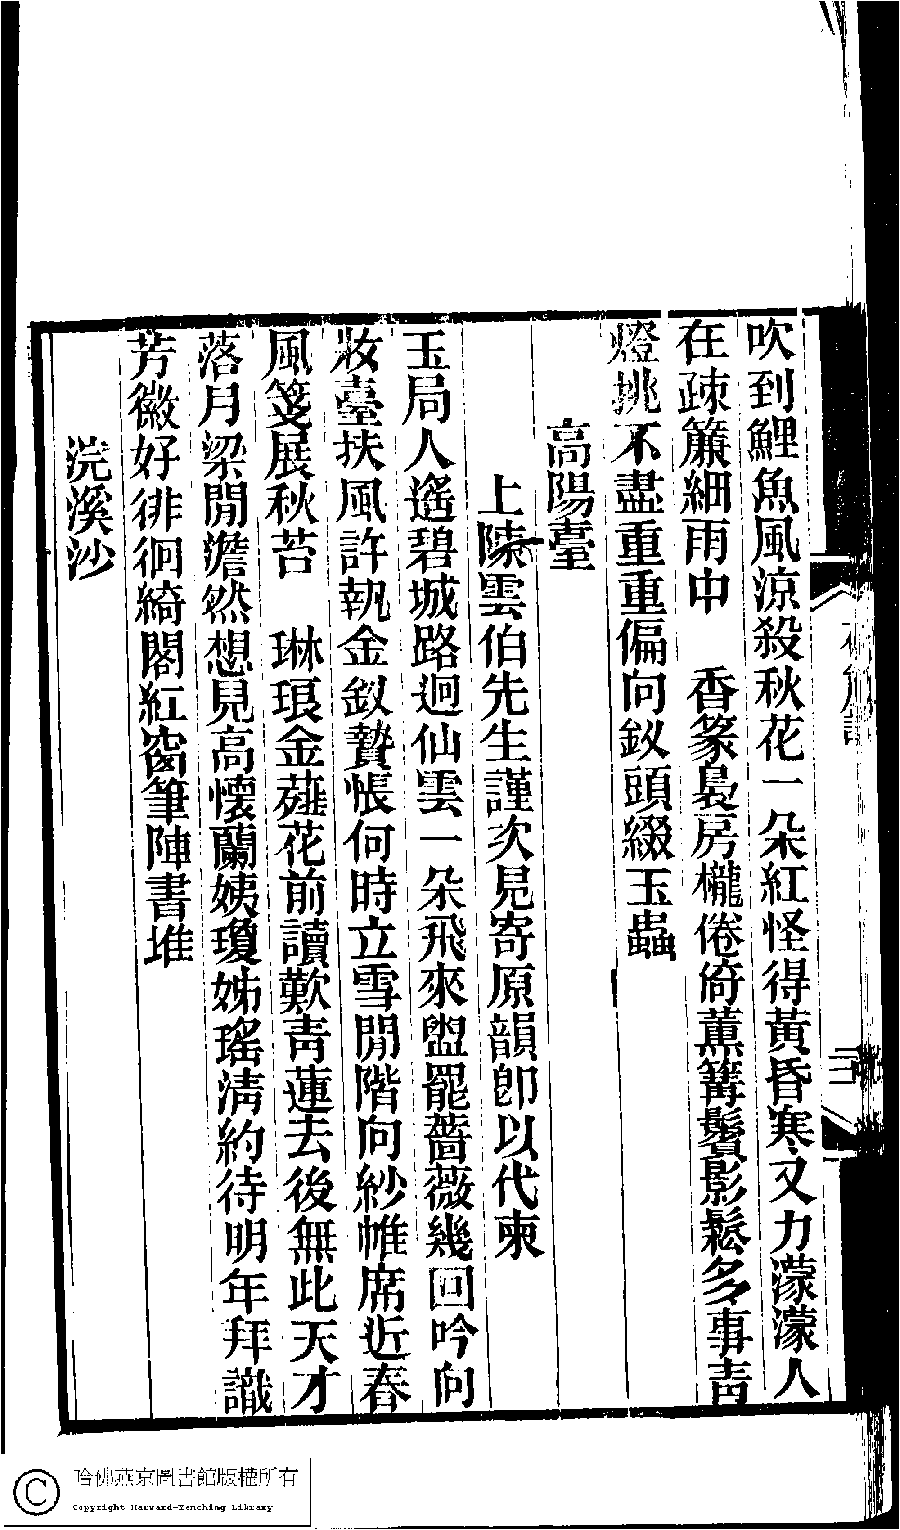 吹到鯉魚風涼殺秋花一朵紅怪得黃昏寒又力濛濛人
在疎簾細雨中　香篆裊房櫳倦倚薰篝鬢影鬆多事靑
燈挑不盡重重偏向釵頭綴玉蟲
高陽臺
上陳雲伯先生謹次見寄原韻卽以代柬
玉局人遙碧城路迥仙雲一朵飛來盥罷薔薇幾回吟向
妝臺扶風許執金釵贄帳何時立雪閒階向紗帷席近春
風箋展秋苔　琳琅金薤花前讀歎靑蓮去後無此天才
落月梁閒澹然想見高懷蘭姨瓊姊瑤淸約待明年拜識
芳徽好徘徊綺閣紅窗筆陣書堆
浣溪沙
三
哈佛燕京圖書館版權所有
Copyright Harvard-Yenching Library